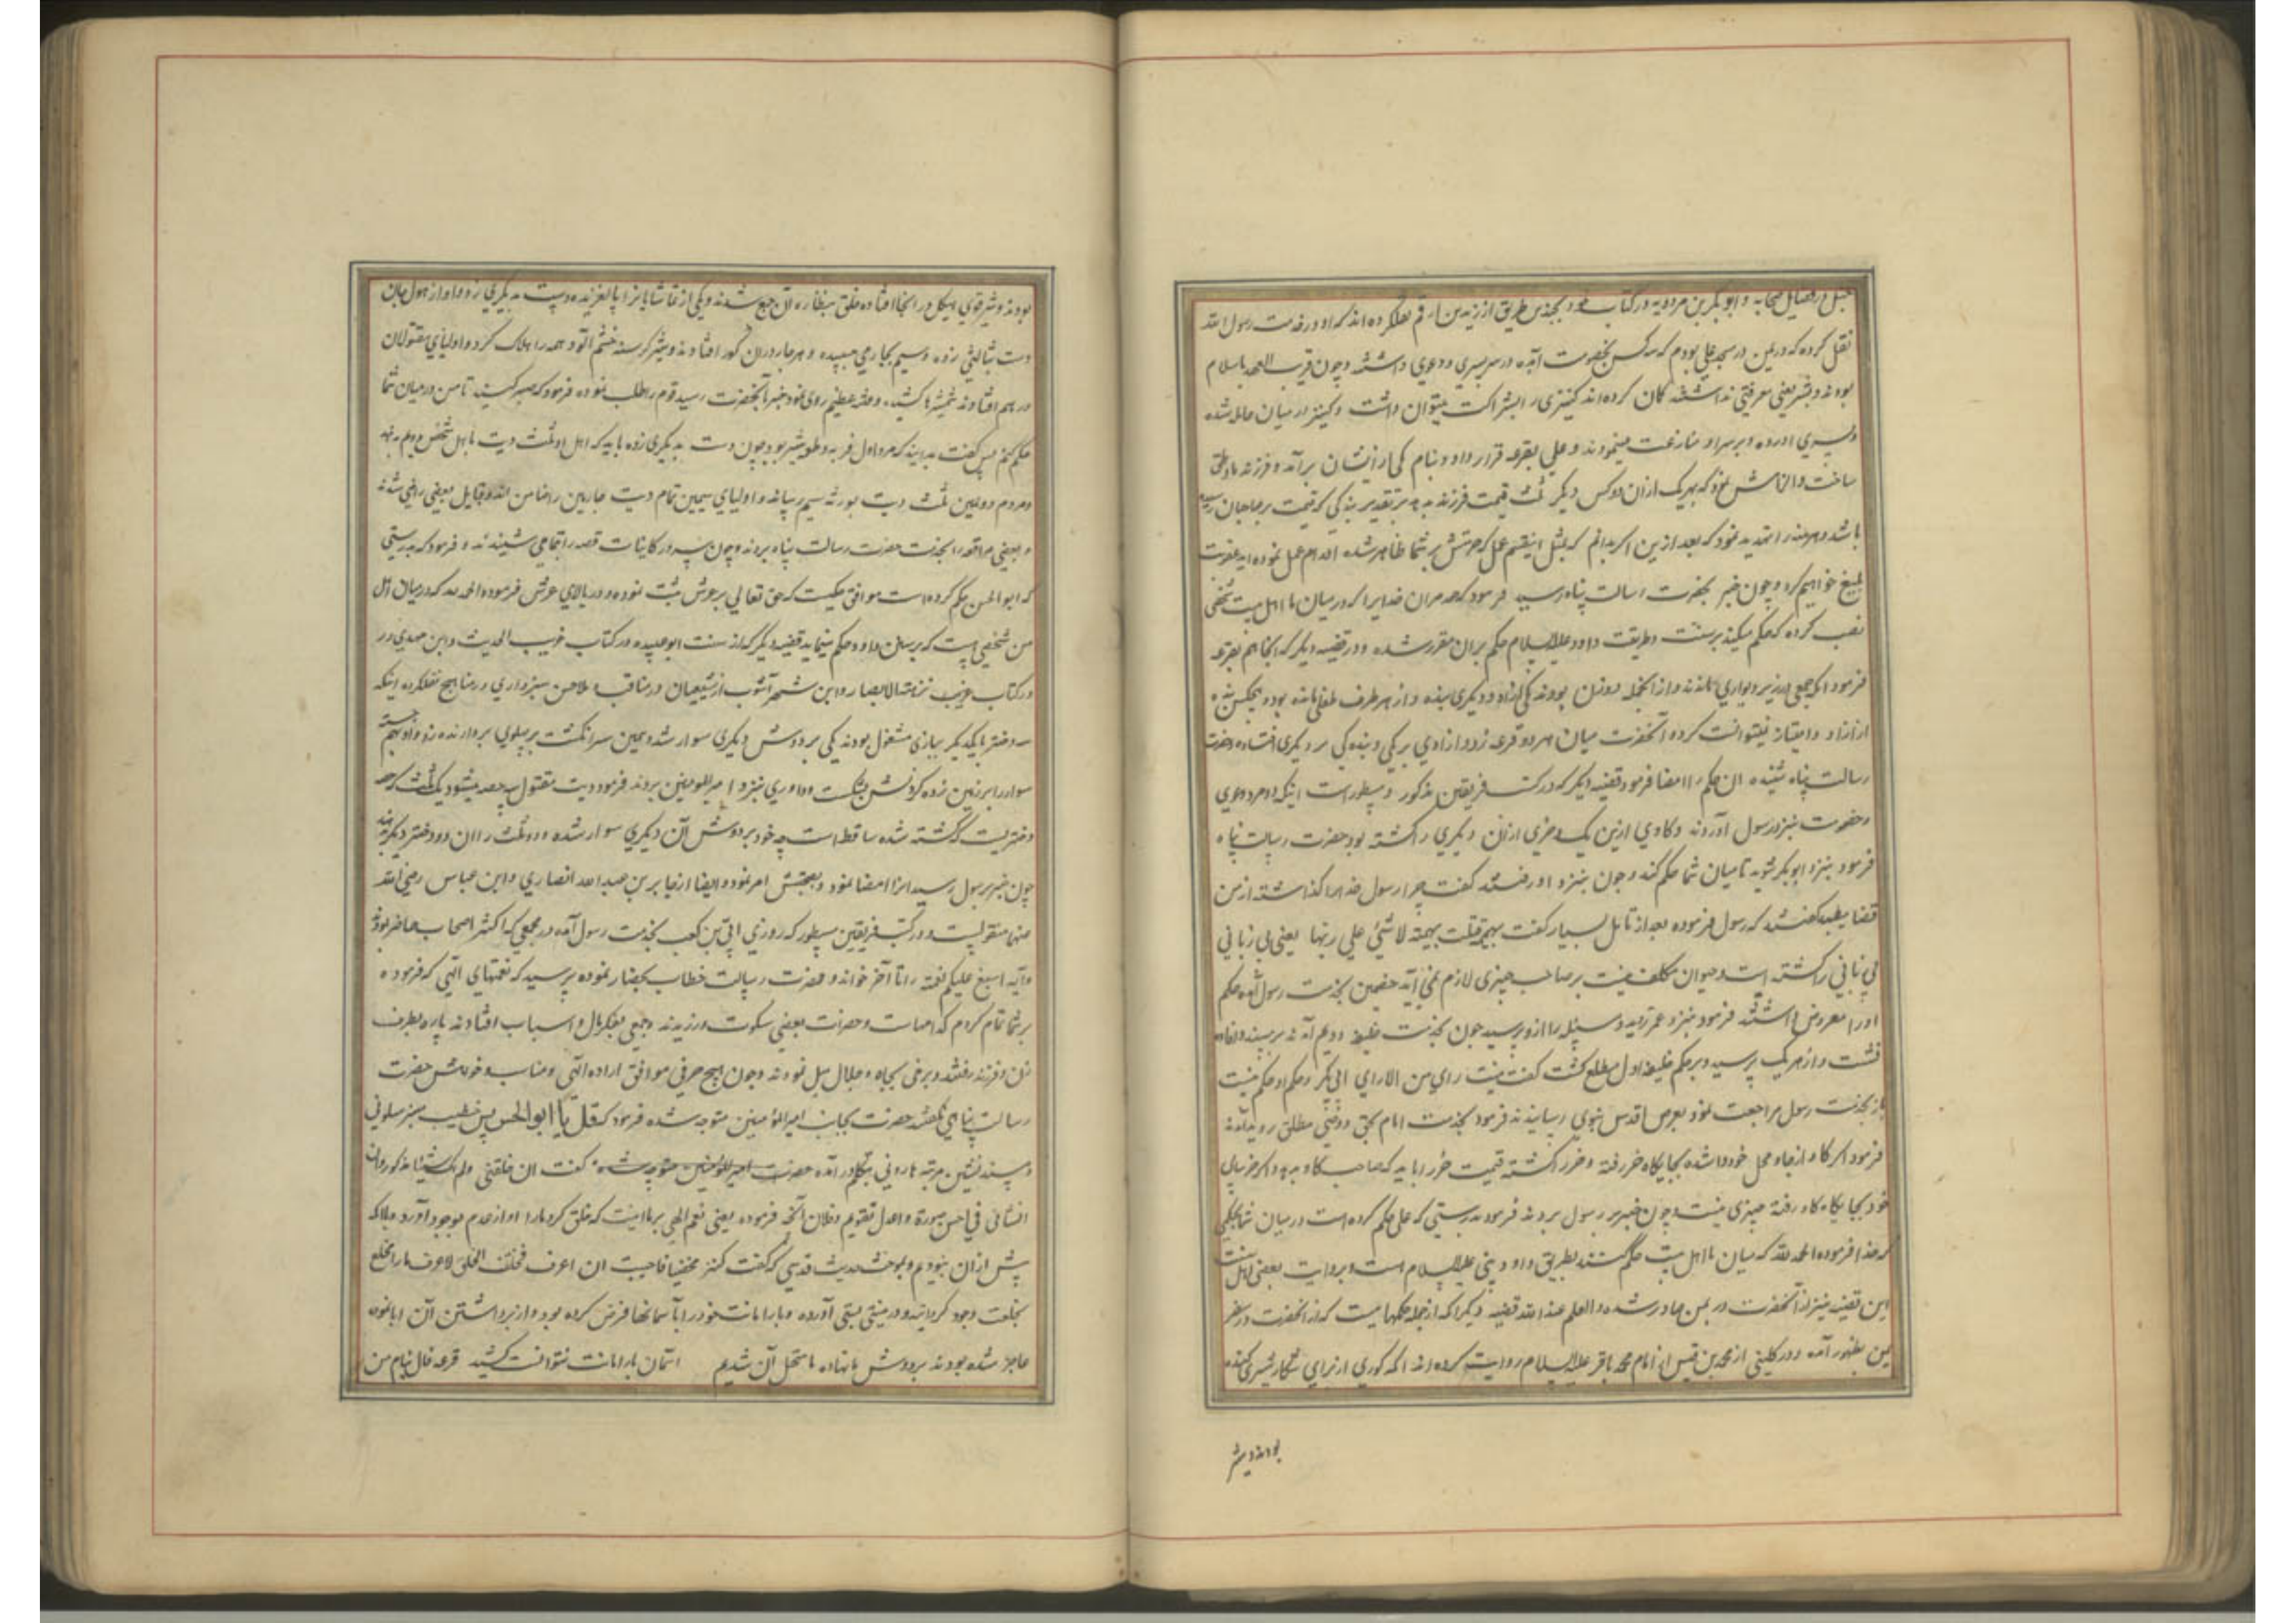 حنبل در فضایل صحابه و ابو بکر بن مردویه در کتاب خود بچند طریق از زید بن ارقم نقلکرده اند که او در خدمت رسول الله
نقل کرده که در یمن در مسجد علی بودم که سه کس بخصومت آمده در سر پسری دعوی داشتند و چون قریب العهد باسلام
بودند و بشرع یعنی معرفتی نداشتند کمان کرده اند کنیزی را بشراکت میتوان داشت و کنیز در میان حامله شده
و پسری آورده و بر سر او منازعت مینمودند و علی بقرعه قرار داد و بنام یکی از ایشان برآمد و فرزند باو ملحق
ساخت و الزامش نمود که بهریک از آن دو کس دیگر ثلث قیمت فرزند بدهد بر تقدیر بندکی که قیمت بر صاحبان رسیده
باشد و هر سه را تهدید نمود که بعد ازین اکر بدانم که بمثل اینقسم عمل که حرمتش بر شما ظاهر شده اقدام عمل نموده اید عقوبت
بلیغ خواهم کرد و چون خبر بحضرت رسالت پناه رسید فرمود که حمد مران خدایرا که در میان ما اهل بیت شخصی
نصب کرده که حکم میکند بر سنت و طریقت داود علیه السلام حکم بران مقرر شده و در قضیه دیکر که انجا هم بقرعه
فرمود انکه جمعی در زیر دیواری ماندند و از انجمله دو زن بودند یکی آزاد و دیکری بنده و از هر طرف طفلی مانده بود و هیچکس بنده
از آزاد امتیاز نمیتوانست کرد آنحضرت میان هر دو قرعه زد و آزادی بر یکی و بندکی بر دیکری افتاده و حضرت
رسالت پناه شنیده آن حکم را امضا فرمود قضیه دیکر که در کتب فریقین مذکور و مسطور است اینکه دو مرد دعوی
و خصومت بنزد رسول آوردند و کاوی ازین یک و خری از آن دیکری را کشته بود حضرت رسالت پناه
فرمود بنزد ابو بکر شوید تا میان شما حکم کند و چون بنزد او رفتند کفت چرا رسول خدا را کذاشته از من
قضا میطلبید کفتند که رسول فرموده بعد از تأمل بسیار کفت بهیمة قتلت بهیمة لا شیٔ علی ربها یعنی بی زبانی
بی زبانی را کشته است و حیوان مکلف نیست بر صاحب چیزی لازم نمی آید خصمین بخدمت رسول آمده حکم
او را معروض داشتند فرمود بنزد عمر روید و مسئله را از او پرسید چون بخدمت خلیفه دویم آمدند بر مسند
نشست و از هر یک پرسید و بر حکم خلیفه اول مطلع کشت کفت نیست رای من الا رای ابی بکر و حکم او حکم نیست
باز بخدمت رسول مراجعت نمود بعرض اقدس نبوی رسانیدند فرمود بخدمت امام بحق و وصی مطلق روید آمدند
فرمود اکر کاو از جا و محل خود وا شده بجایکاه خر رفته و خر را کشته قیمت خر را باید که صاحب کاو بدهد و اکر خر بپای
خود بجایکاه کاو رفته چیزی نیست و چون خبر بر رسول بردند فرمود بدرستی که علی حکم کرده است در میان شما بحکمی
که خدا فرموده الحمد لله که میان ما اهل بیت حکم کنند بطریق داود نبی علیه السلام است و بروایت بعضی اهل سنت
این قضیه نیز از آنحضرت در یمن صادر شده و العلم عند الله قضیه دیکر که از جمله حکمهاییست که از انحضرت در سفر
یمن بظهور آمده و در کلینی از محمد بن قیس از امام محمد باقر علیه السلام روایت کرده اند انکه کوری از برای شکار شیر کنده
بودند و شیر
بودند و شیر قوی هیکل در انجا افتاده خلق بنظاره آن جمع شدند و یکی از تماشاییانرا پا لغزیده دست بدیکری زد و او از هول جان
دست بثالثی زده و سیم بچارمی چسپیده و هر چار در ان کهو افتادند و شیر کرسنه خشم آلود همه را هلاک کرد و اولیای مقتولان
در هم افتادند شمشیرها کشیدند و فتنه عظیم روی نمود خبر بآنحضرت رسید قوم را طلب نموده فرمود که صبر کنید تا من در میان شما
حکم کنم پس کفت بدانید که مرد اول فریسه و طعمه شیر بود چون دست بدیکری زده باید که اهل او ثلث دیت باهل شخص دویم بدهد
و مردم دومین ثلث دیت بورثه سیم رساند و اولیای سیمین تمام دیت چارمین را ضامن اند و قبایل بعضی راضی شدند
و بعضی مرافعه را بخدمت حضرت رسالت پناه بردند و چون سرور کاینات قصه را بتمامی شنیدند و فرمود که بدرستی
که ابو الحسن حکم کرده است موافق حکمیست که حق تعالی بر عرش ثبت نموده و در بالای عرش فرموده الحمد لله که در میان اهل
من شخصی هست که برسان داود حکم مینماید قضیه دیکر که از سنت ابو عبیده در کتاب غریب الحدیث و ابن مهدی در
در کتاب عرایب نزهته الابصار و ابن شهر آشوب از شیعیان در مناقب و ملا حسن سبزواری در مناهج نقلکرده اینکه
سه دختر با یکدیکر ببازی مشغول بودند یکی بر دوش دیکری سوار شد و سیمین سر انکشت بر پهلوی بردارنده زد و او بهم جسته
سوار را بر زمین زده کردنش بشکست و داوری بنزد امیر المومنین بردند فرمود دیت مقتول سه حصه میشود یک ثلث که حصه
دختریست که کشته شده ساقط است چه خود بر دوش آن دیکری سوار شده و دو ثلث را ان دو دختر دیکر بدهند
چون خبر برسول رسید انرا امضا نمود و بصحتش امر نمود و ایضا از جابر بن عبد الله انصاری و ابن عباس رضی الله
عنهما منقولست و در کتب فریقین مسطور که روزی ابی بن کعب بخدمت رسول آمده در مجمعی که اکثر اصحاب حاضر بودند
و آیه اسبغ علیکم نعمته را تا آخر خواند و حضرت رسالت خطاب بحضار نموده پرسید که نعمتهای الهی که فرموده
بر شما تمام کردم کدامهاست و حضرات بعضی سکوت ورزیدند و جمعی بفکر مال و اسباب افتادند پاره بطرف
زن و فرزند رفتند و برخی بجاه و جلال میل نمودند و چون هیچ حرفی موافق اراده الهی و مناسب خواهش حضرت
رسالت پناهی نکفتند حضرت بجانب امیر المؤمنین متوجه شده فرمود که قل یا ابو الحسن پس خطیب منبر سلونی
و مسند نشین مرتبه هارونی بتکلم در آمده حضرت امیر المومنین متوجه شده کفت ان خلقنی و لم اک شیئا مذکورا و ان
انشأنی فی احسن صورة و اعدل تقویم و فلان آنچه فرموده یعنی نعم الهی بر ما اینست که خلق کرد ما را و از عدم بوجود آورد و حال آنکه
پیش از ان نبودیم و بموجب حدیث قدسی که کفت کنز مخفیا فاحببت ان اعرف فخلقت الخلق لاعرف ما را بخلع
بخلعت وجود کردانید و در نیستی بستی آورده و بار امانت خود را بآسمانها عرض کرده بود و از برداشتن آن ابا نموده
عاجز شده بودند بر دوش ما نهاده ما متحمل آن شدیم آسمان بار امانت نتوانست کشید قرعه فال بنام من